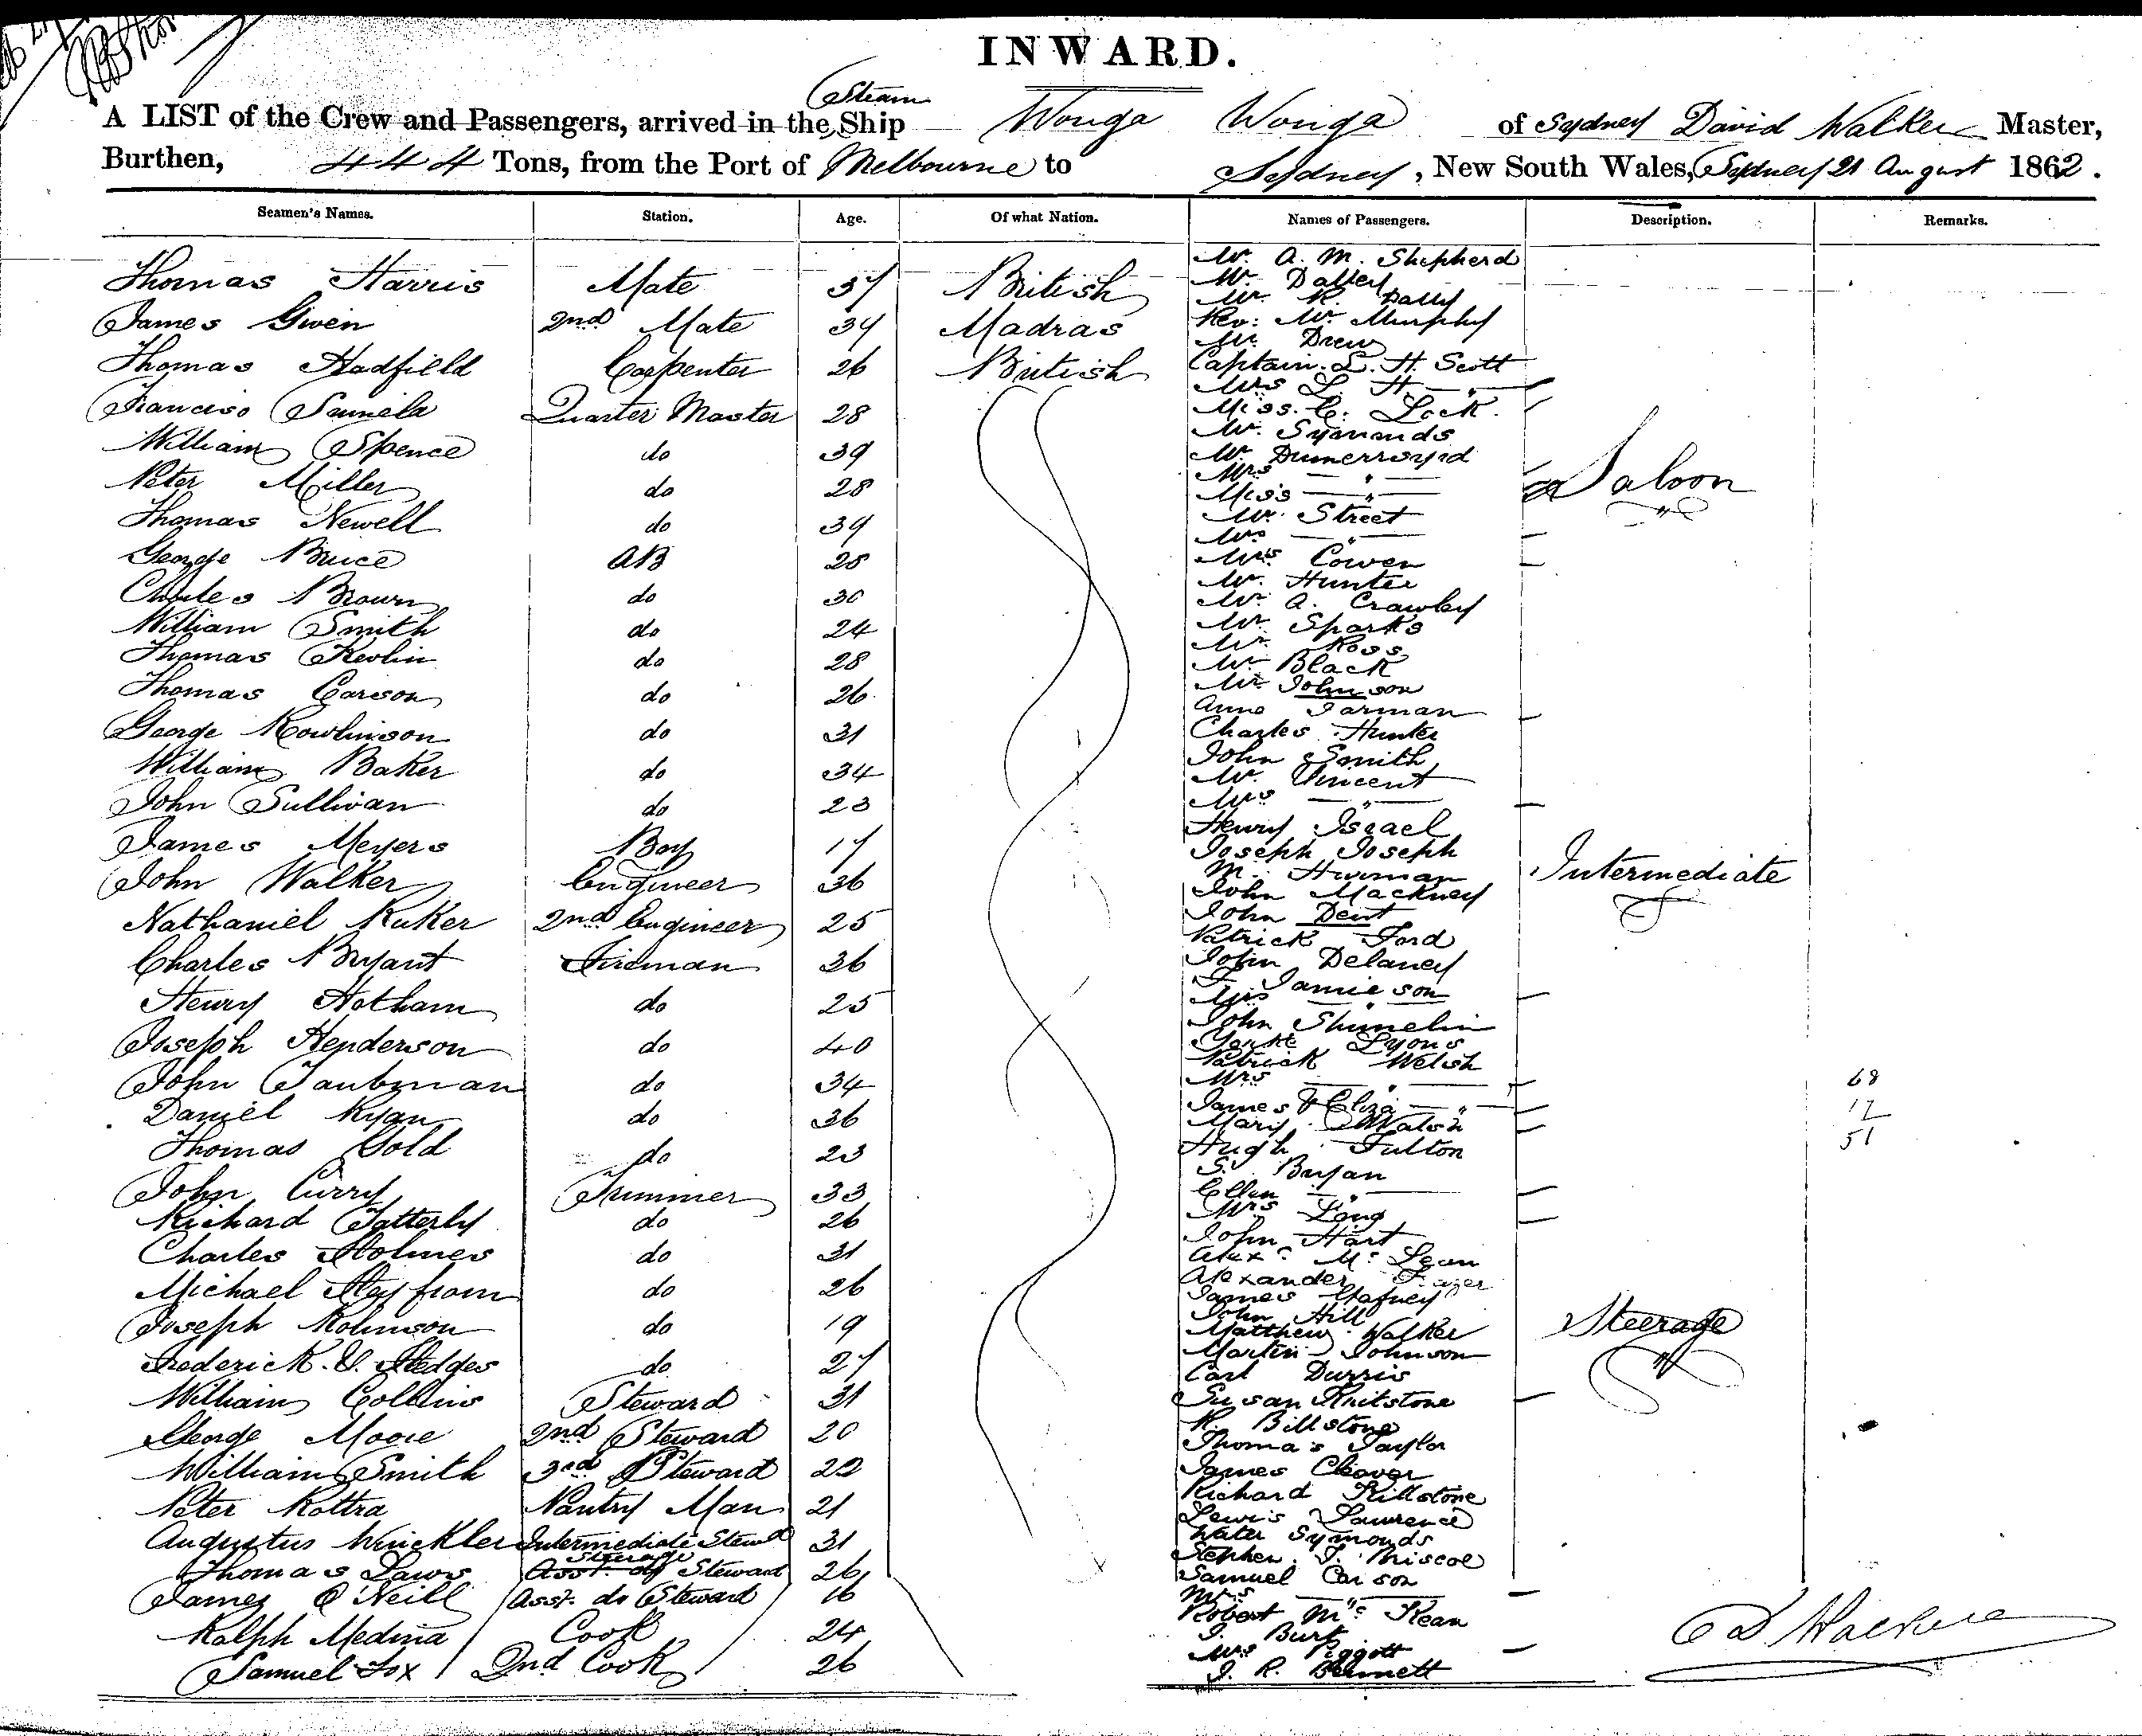 INWARD.
Steam
A LIST of the Crew and Passengers, arrived in the Ship Wonga Wonga of Sydney David Walker Master,
Burthen, 444 Tons, from the Port of Melbourne to Sydney, New South Wales, Sydney 21 August 1862.
Seamen's Names. Station. Age. Of what Nation. Names of Passengers. Description. Remarks.
Thomas Harris Mate 37 British
James Gwen 2nd Mate 34 Madras
Thomas Hadfield Carpenter 26 British
Quarter Master 28
William Spence do 39
Peter Miller do 28
Thomas Newell do 39
George Bruce AB 28
Charles Brown do 30
William Smith do 24
Thomas do 28
Thomas Carson do 26
George Rowlinson do 31
William Baker do 34
John Sullivan do 23
James Meyers Boy 17
John Walker Engineer 36
Nathaniel Ruker 2nd Engineer 25
Charles Bryant Fireman 36
Henry Hotham do 25
Joseph Henderson do 40
John Taubman do 34
Daniel Ryan do 36
Thomas Gold do 23
John Curry Trimmer 33
Richard Tatterly do 26
Charles Holmes do 31
Michael do 26
Joseph Robinson do 19
Frederick Hedges do 27
William Collins Steward 31
George Moore 2nd Steward 20
William Smith 3rd Steward 22
Peter Rottra Pantry Man 21
Augustus Winckler Intermediate Stewd 31
Thomas Laws Steerage Steward 26
James O'Neill Asst. do Steward 16
Ralph Medina Cook 24
Samuel Fox 2nd Cook 26
Mr. A. M. Shepherd
Mr. Dalley
Mr. R. Dally
Rev: Mr. Murphy
Mr. Drew
Captain L. H. Scott
Mrs L. H. — " —
Miss. C. Lock.
Mr. Symonds
Mr.
Mrs — " —
Miss — " —
Mr. Street
Mrs — " —
Mrs Cowen
Mr. Hunter
Mr. A. Crawley
Mr. Sparks
Mr. Ross
Mr. Black
Mr. Johnson
Saloon
Anne Jarman
Charles Hunter
John Smith
Mr. Vincent
Mrs — " —
Henry Israel
Joseph Joseph
M.
John Mackney
John Dent
Intermediate
Patrick Ford
John Delaney
F. Jamieson
Mrs — " —
John
Lyons
Patrick Welsh
Mrs — " —
James & Eliza — " —
Mary Walsh
Hugh Fulton
S. Bryan
Ellen — " —
Mrs Long
John Hart
Alexr. Mc Lean
Alexander
James Gafney
John Hill
Matthew Walker
Martin Johnson
Carl Durris
Susan
R. Billstone
Thomas Taylor
James Cleaver
Richard
Lewis Lawrence
Water Symonds
Stephen J. Briscoe
Samuel Carson
Mrs — " —
Robert Mc Kean
J. Burk
Mrs Piggott
J. R. Bennett
Steerage
68
17
51
D. Walker